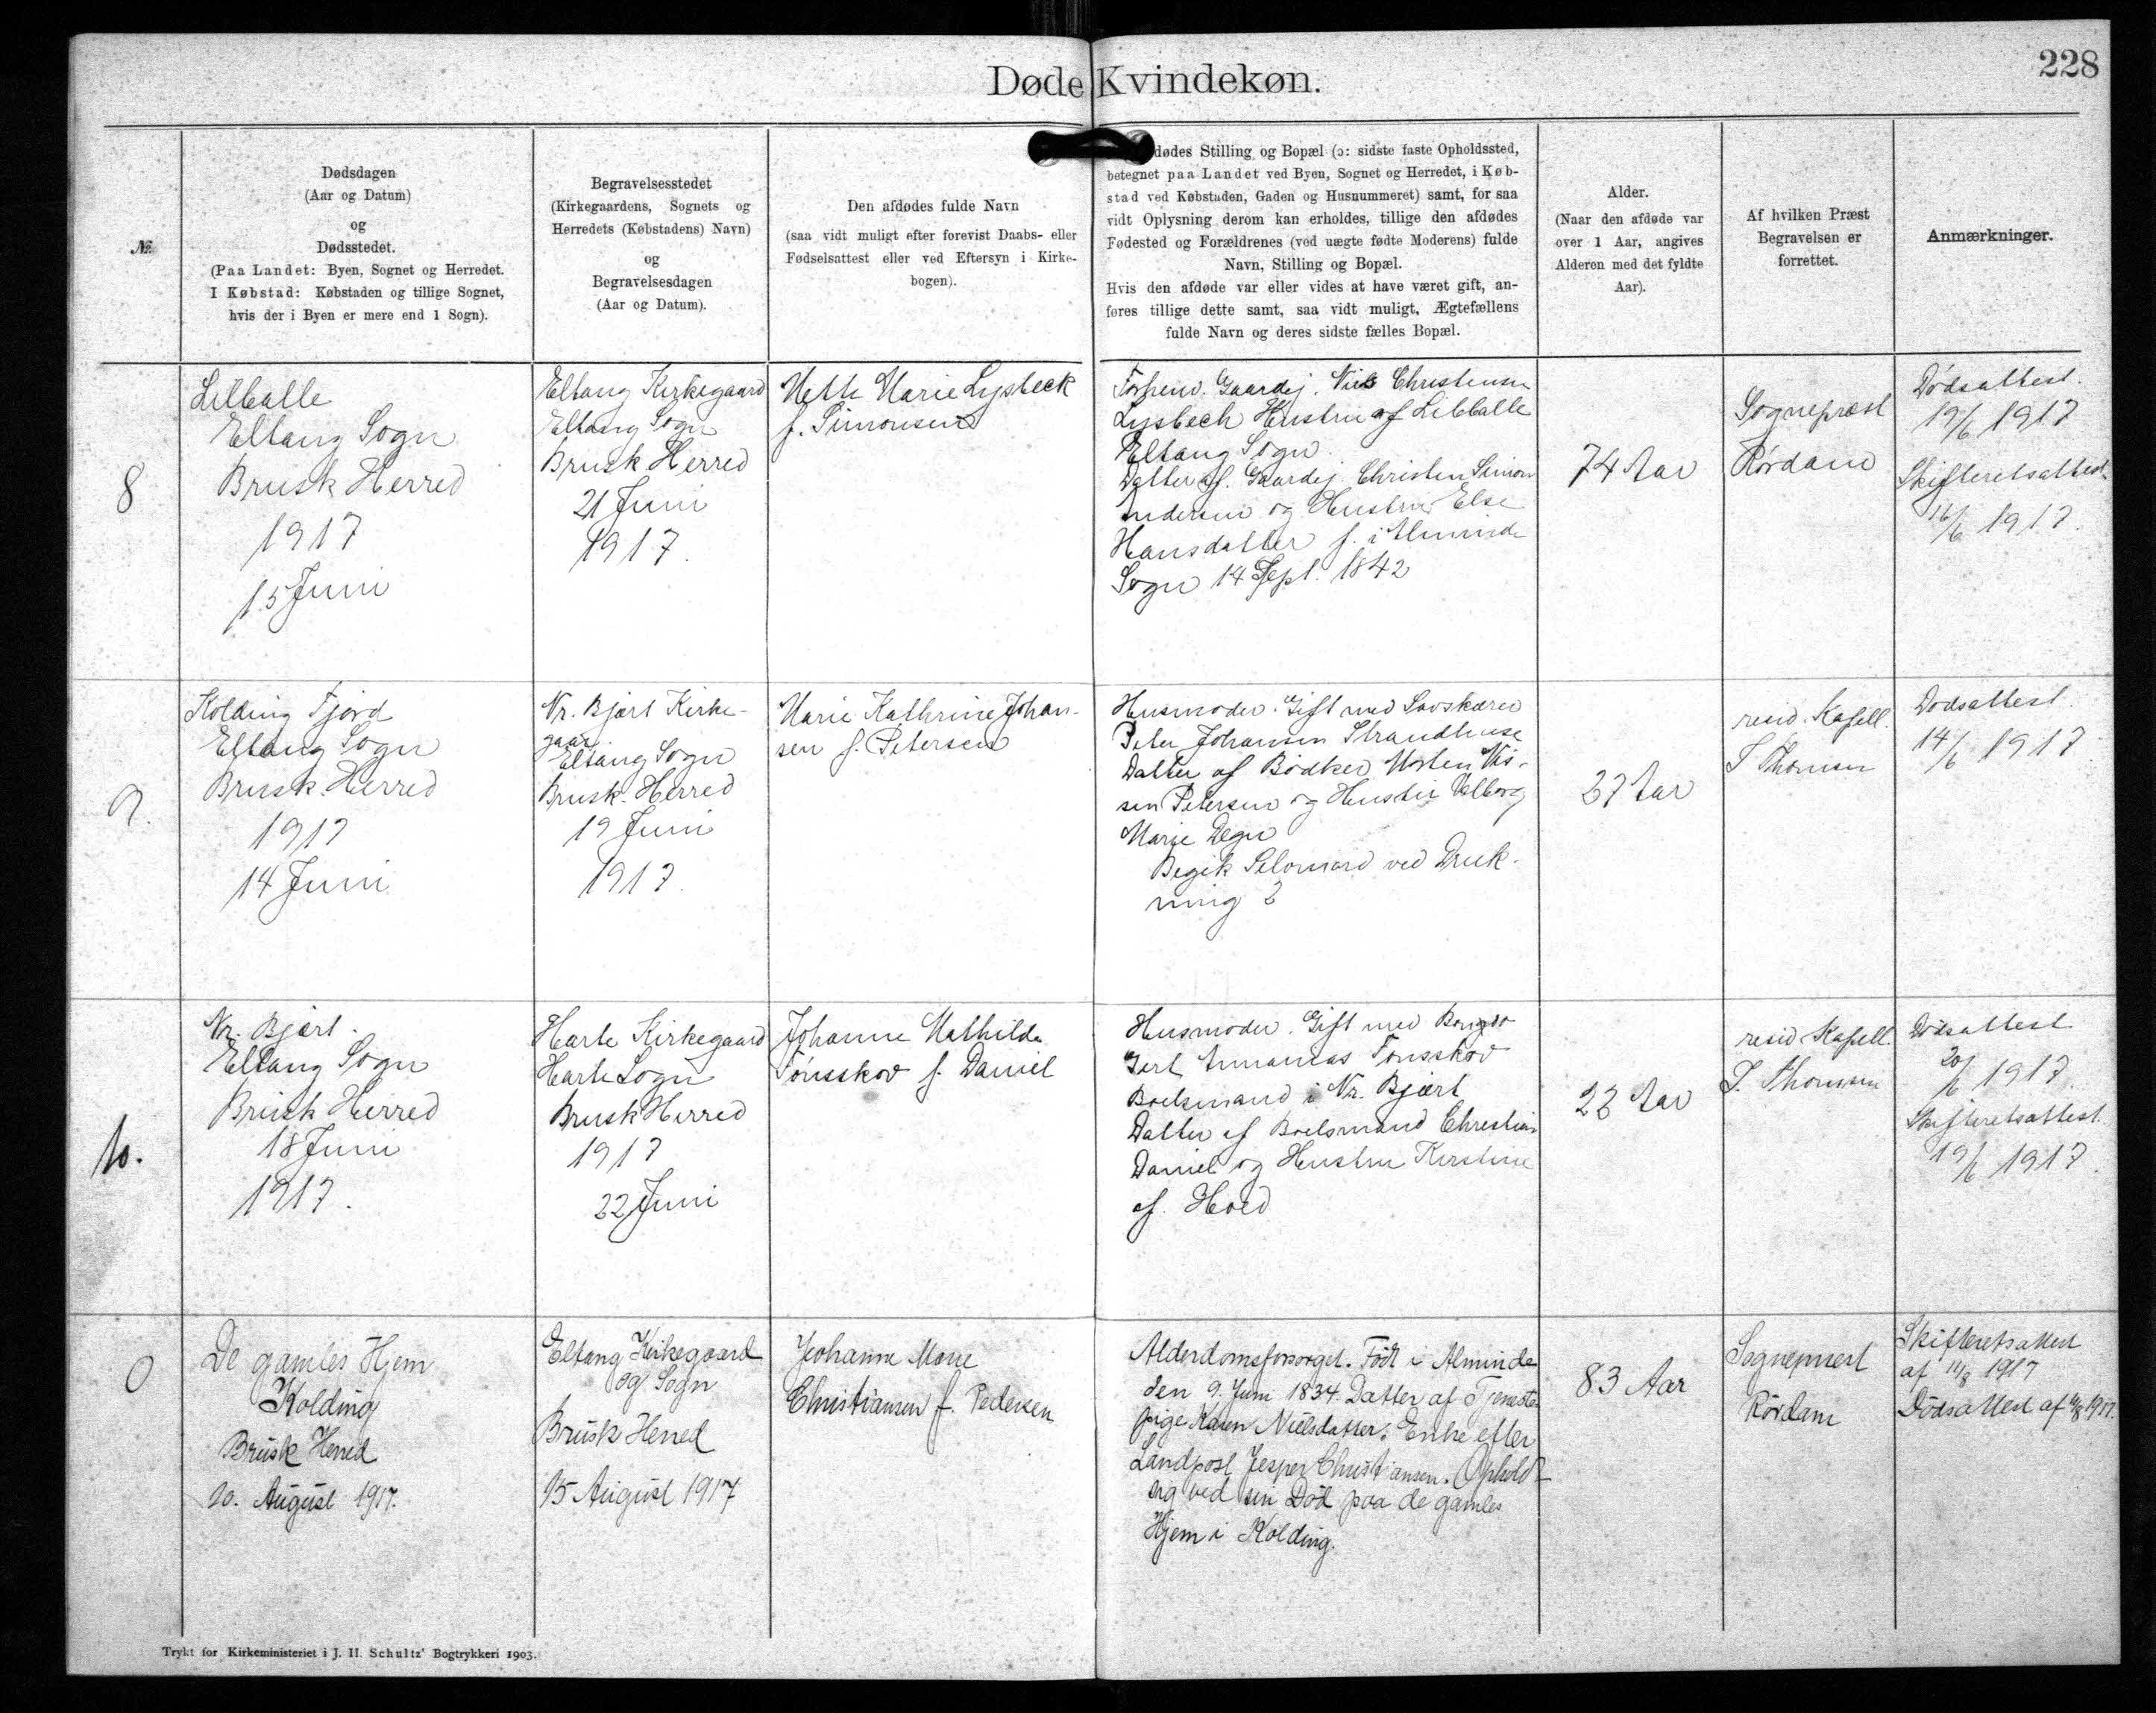 228
Døde Kvindekøn.
№
Dødsdagen
(Aar og Datum)
og
Dødsstedet.
(Paa Landet: Byen, Sognet og Herredet.
I Købstad: Købstaden og tillige Sognet,
hvis der i Byen er mere end 1 Sogn).
Begravelsesstedet
(Kirkegaardens, Sognets og
Herredets (Købstadens) Navn)
og
Begravelsesdagen
(Aar og Datum).
Den afdødes fulde Navn
(saa vidt muligt efter forevist Daabs- eller
Fødselsattest eller ved Eftersyn i Kirke-
bogen).
dødes Stilling og Bopæl (ɔ: sidste faste Opholdssted,
betegnet paa Landet ved Byen, Sognet og Herredet, i Køb-
stad ved Købstaden, Gaden og Husnummeret) samt, for saa
vidt Oplysning derom kan erholdes, tillige den afdødes
Fødested og Forældrenes (ved uægte fødte Moderens) fulde
Navn, Stilling og Bopæl.
Hvis den afdøde var eller vides at have været gift, an-
føres tillige dette samt, saa vidt muligt, Ægtefællens
fulde Navn og deres sidste fælles Bopæl.
Alder.
(Naar den afdøde var
over 1 Aar, angives
Alderen med det fyldte
Aar).
Af hvilken Præst
Begravelsen er
forrettet.
Anmærkninger.
8
Lilballe
Eltang Sogn
Brusk Herred
1917
15 Juni
Eltang Kirkegaard
Eltang Sogn
Brusk Herred
21 Juni
1917.
Mette Marie Lysbeck
f. Simonsen
Forhenv. Gaardej. Niels Christensen
Lysbech Hustru af Lilballe
Eltang Sogn.
Datter af Gaardej. Christen Simon
Andersen og Hustru Else
Hansdatter f. i Alminde
Sogn 14 Sept. 1842
74 Aar
Sognepræst
Rørdam
Dødsattest.
19/6 1917
Skifteretsattest.
16/6 1917.
9.
Kolding Fjord
Eltang Sogn
Brusk Herred
1917
14 Juni
Nr. Bjært Kirke-
gaar
Eltang Sogn
Brusk Herred
19 Juni
1917.
Marie Kathrine Johan-
sen f. Petersen
Husmoder. Gift med Savskærer
Peter Johansen Strandhuse
Datter af Bødker Morten Nis-
sen Petersen og Hustru Valborg
Marie Degn
Begik Selvmord ved Druk-
ning
27 Aar
resid. Kapell.
S Thomsen
Dødsattest
14/6 1917
10.
Nr. Bjært.
Eltang Sogn
Brusk Herred
18 Juni
1917.
Harte Kirkegaard
Harte Sogn
Brusk Herred
1917
22 Juni
Johanne Mathilde
Tønsskov f. Daniel
Husmoder. Gift med
Gert Tønsskov
Boelsmand i Nr. Bjært
Datter af Boelsmand Christian
Daniel og Hustru Kirstine
af
23 Aar
resid. Kapell.
S. Thomsen
Dødsattest
20/6 1917.
Skifteretsattest.
19/6 1917.
0
De gamles Hjem
Kolding
Brusk Herred
10. August 1917.
Eltang Kirkegaard
og Sogn
Brusk Herred
15 August 1917
Johanne Marie
Christiansen f. Pedersen
Alderdomsforsørget. Født i Alminde
den 9. Juni 1834. Datter af Tjeneste-
pige Karen Nielsdatter. Enke efter
Landpost Jesper Christiansen. Opholdt
sig ved sin Død paa de gamles
Hjem i Kolding.
83 Aar
Sognepræst
Rørdam
Skifteretsattest
af 11/8 1917
Dødsattest af 11/8 1917.
Trykt for Kirkeministeriet i J. H. Schultz' Bogtrykkeri 1903.